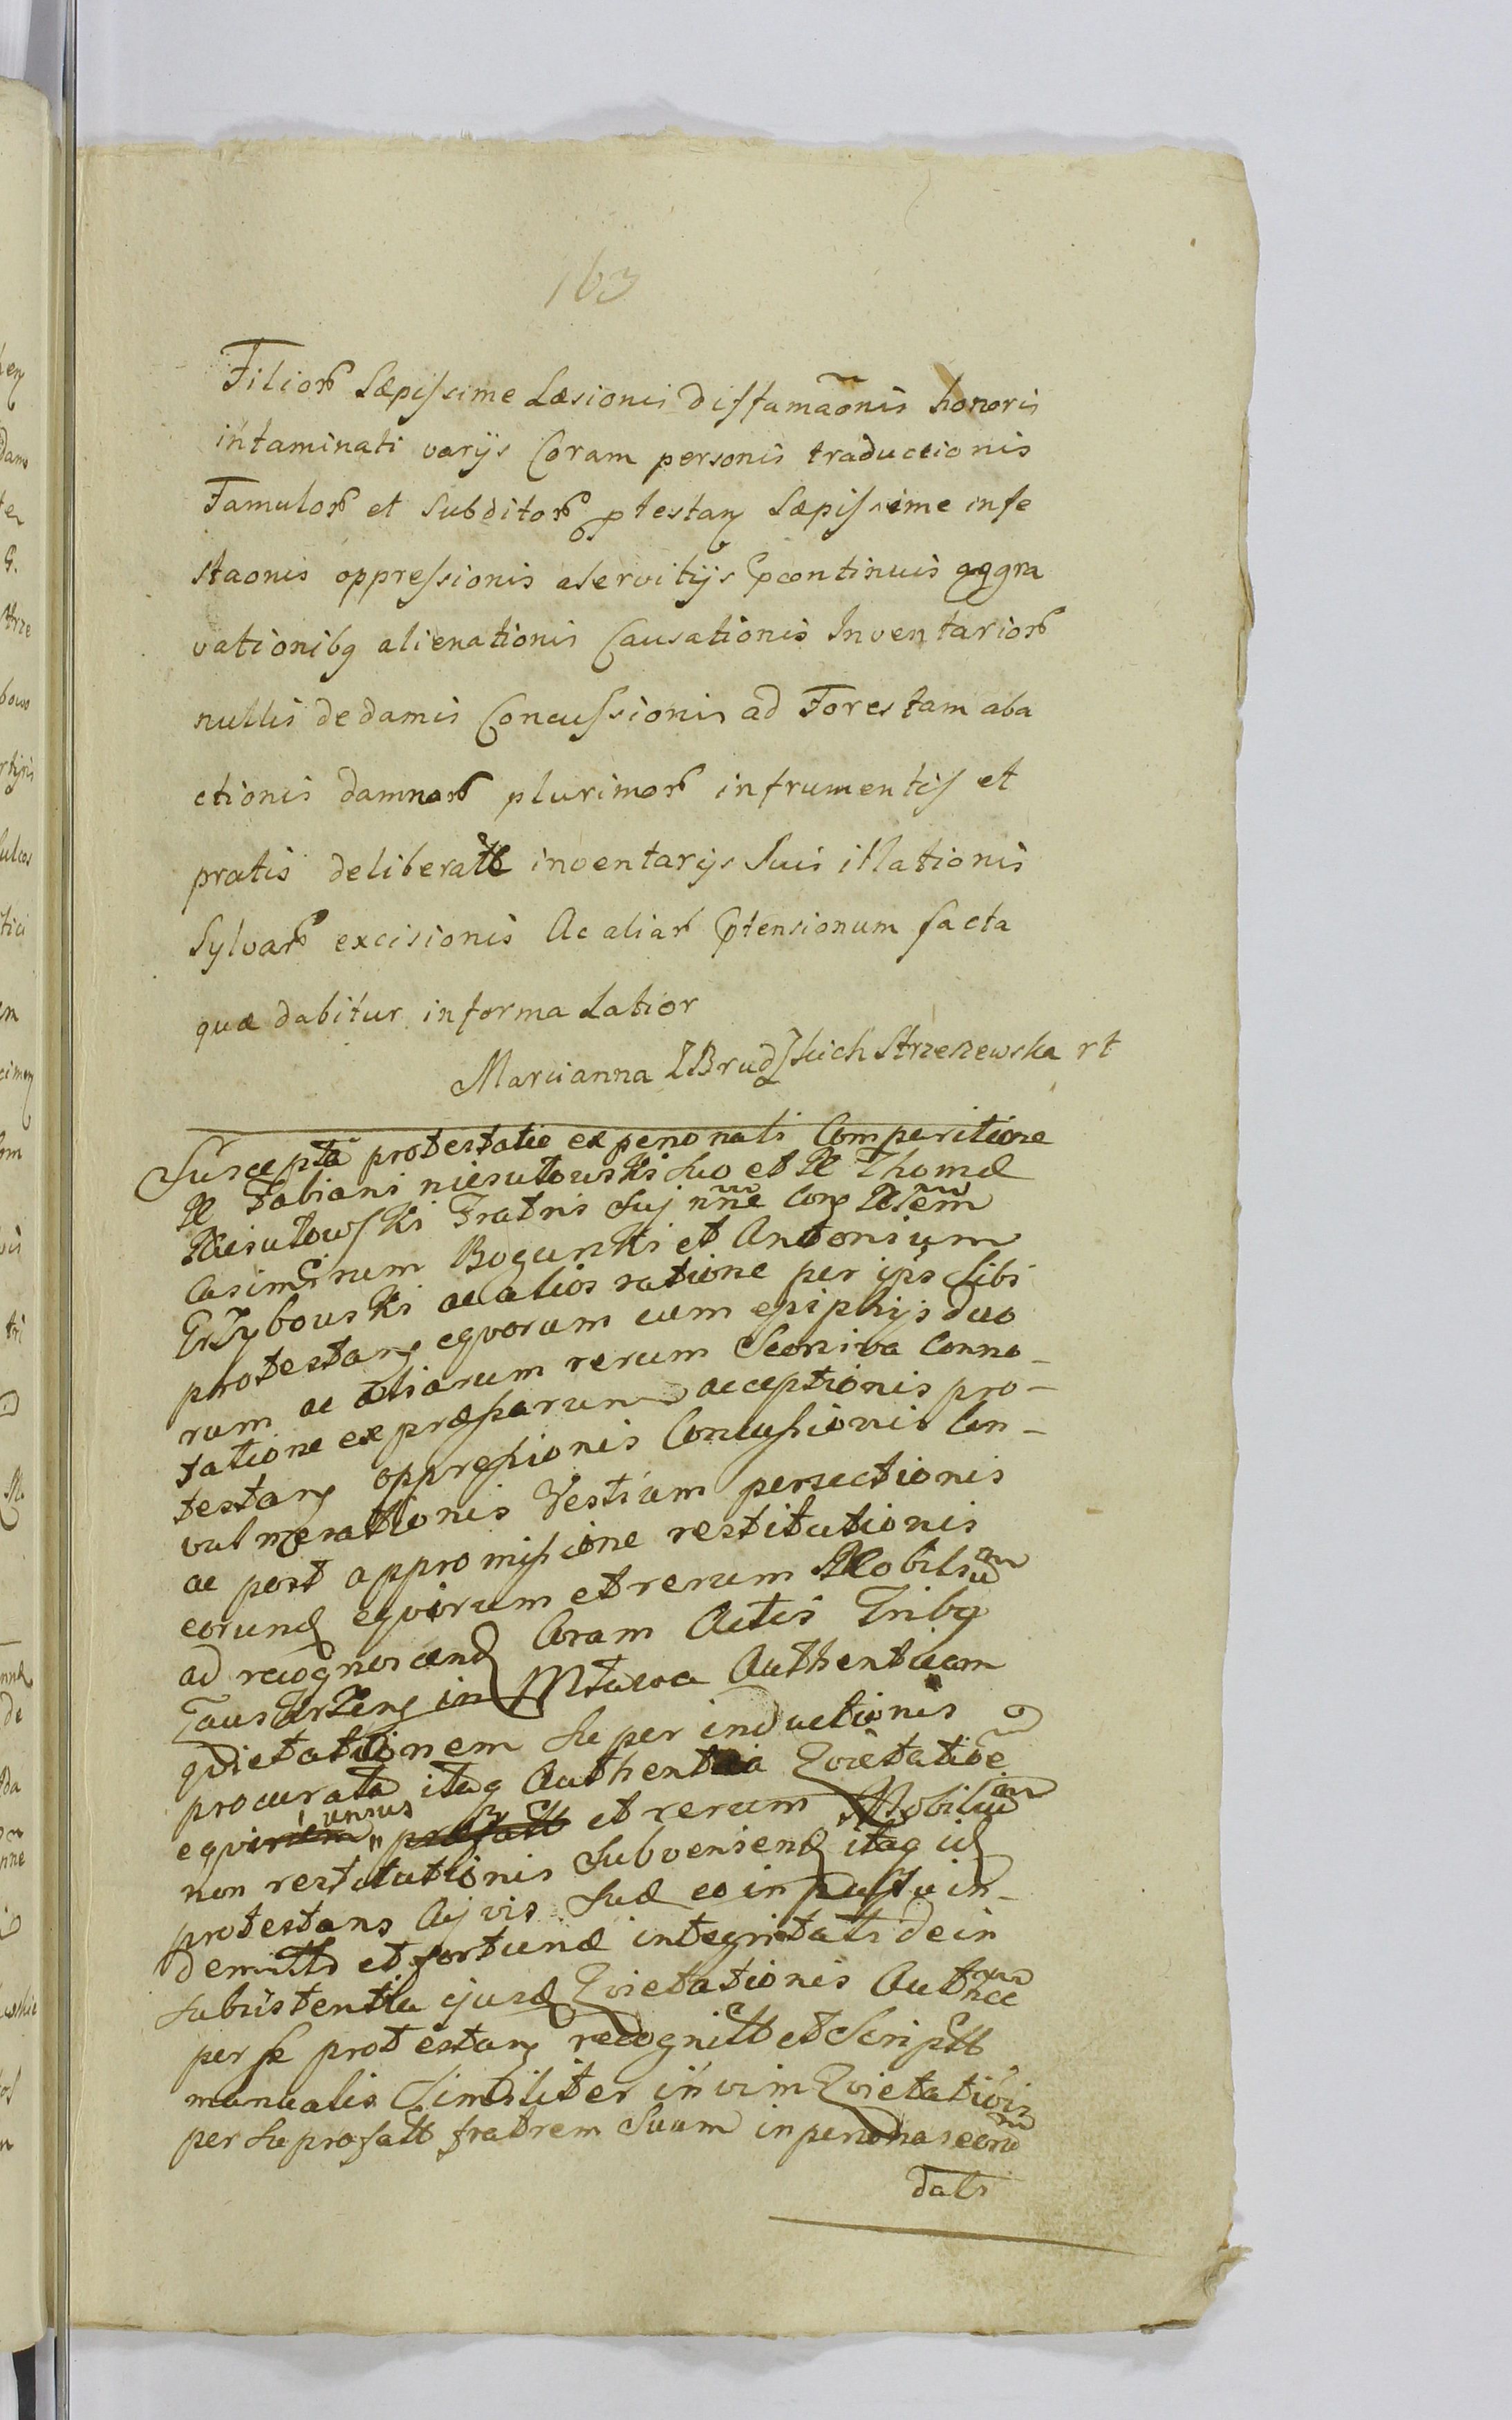 163
Filior Sæpissime Læsionis diffamaõnis honoris
intaminati varijs Coram personis traductionis
Famulor et Subditor ptestan Sæpissime infe
staonis oppressionis aservitijs Contiuis aggra
vationibq alienationis Causationis Inventarior
nullis dedamis Concussionis ad Forestam aba
ctionis damnor plurimor infrumentis et
pratis deliberatt inventarijs Suis illationis
Sylvar excisionis Ac aliar ptensionum facta
quæ dabitur informa Latior
Marcianna ZBrudzkich Strzeszewska rt
Suscepta protestatio ex personali Comparitione
N Fabiani niesutowski Suo et N Thomæ
Niesutowski Fratris Suj nne Con
Casimirum Boguński et Antonium
Grzybowski ac alios ratione per ips Sibi
protestan eqvorum cum epiphijs duo
rum ac aliarum rerum Seorsiva Conno-
tatione expræssarum acceptionis pro-
testan oppressionis Concussionis Con-
vulnerationis Vestium persectionis
ac post appromissione restitutionis
eorund eqvorum et rerum Mobiliu
ad recognoscend Coram Actis Tribq
Caus in Mlawa Authenticam
qvietationem Super inductionis
procurata itaq Authentica Qvietatioe
eqvi unius et rerum Mobiliu
non restitutionis Subveniend itaq id
protestans Cujvis Suæ eo in passu in-
demtt et fortunæ integritati de in
subsistentia ejusd Qvietationis Auth
per se protestan recognitt et Scriptt
manualis Similiter in vim Qvietationis
per Suprafatt fratrem Suum in personas
dati